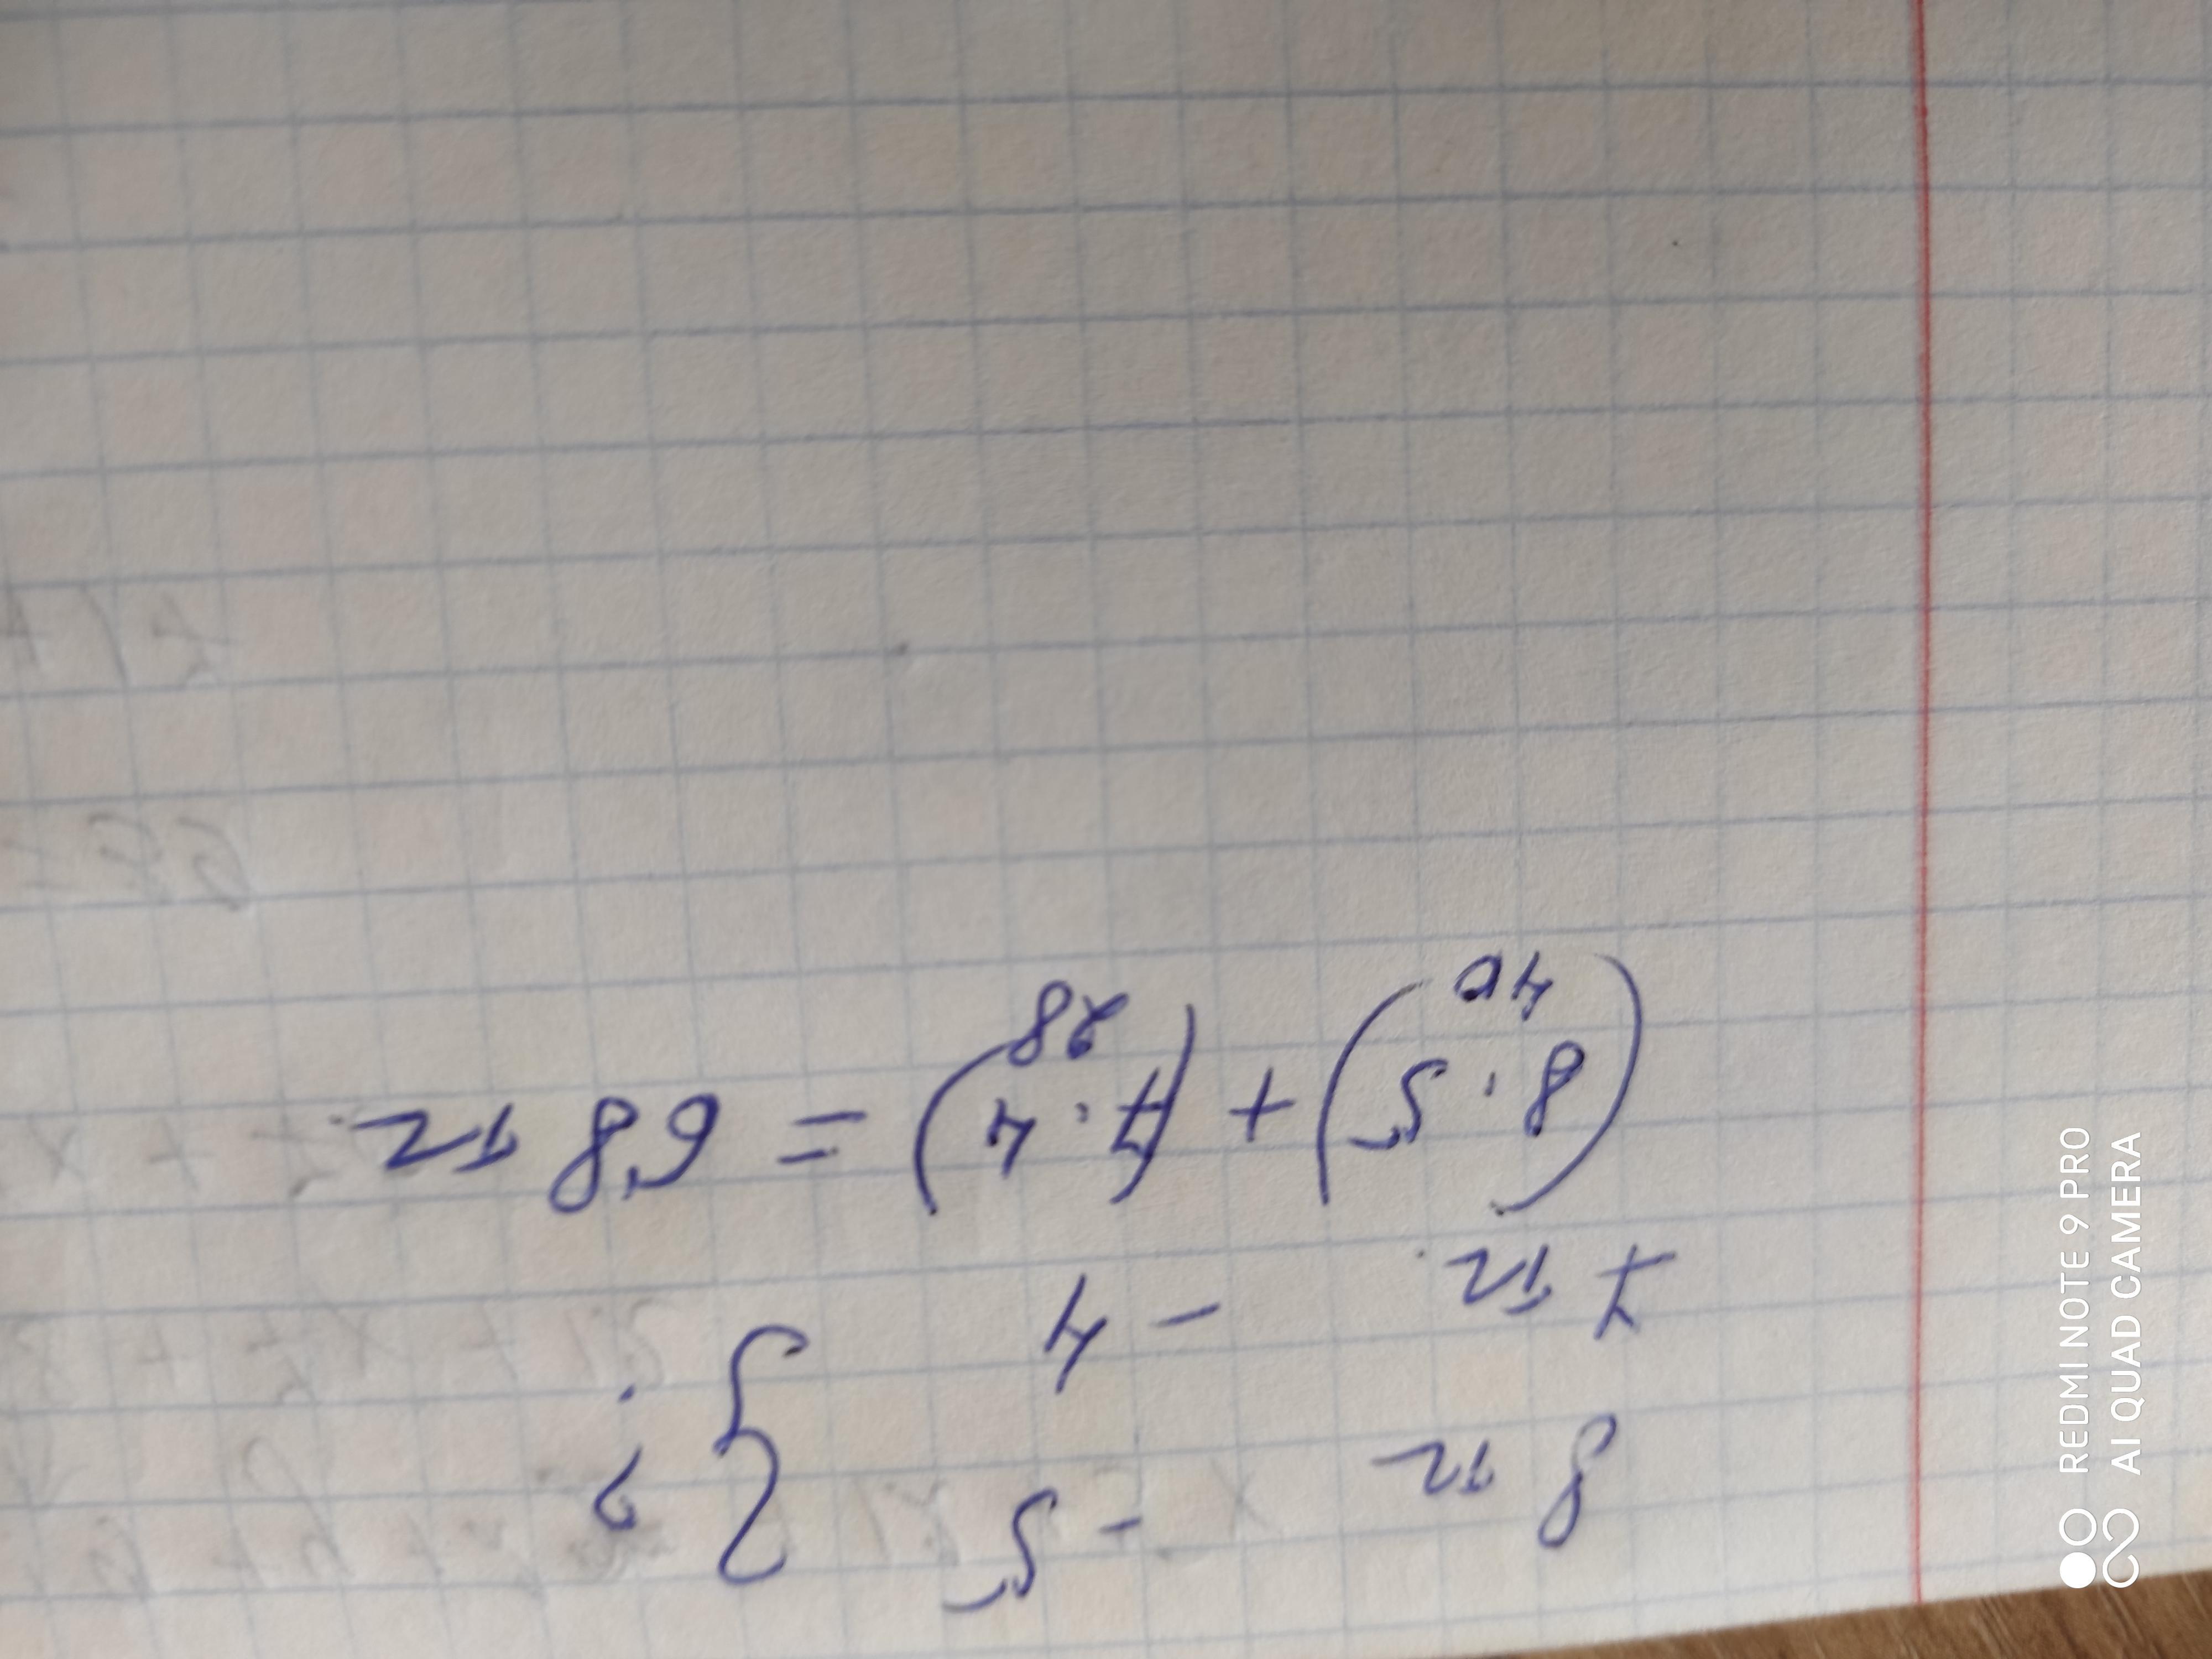 8 тг - 5 } ?
7 тг. - 4
(8·5) + (7·4) = 68 тг.
40 28
REDMI NOTE 9 PRO
AI QUAD CAMERA